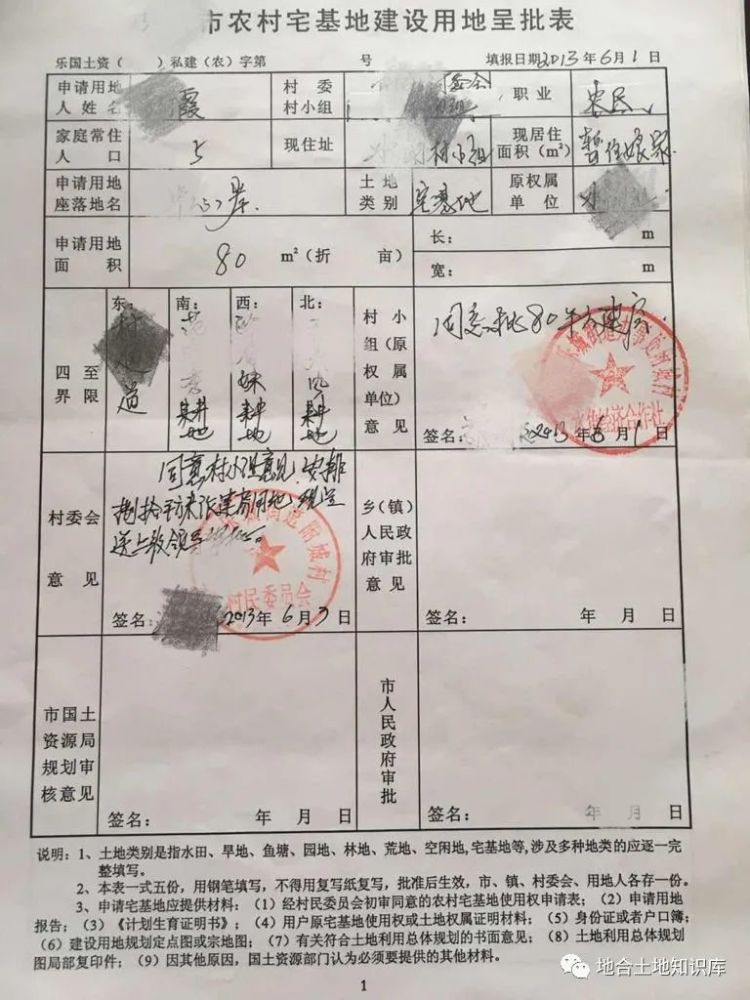 市农村宅基地建设用地呈批表
乐国土资（ ）私建（农）字第 号 填报日期2013年6月1日
申请用地人姓名 霞 村委村小组 职业 农民
家庭常住人口 5 现住址 村小组 现居住面积（m²） 暂住娘家
申请用地座落地名 土地类别 宅基地 原权属单位
申请用地面积 80 m²（折 亩） 长： m
宽： m
四至界限 东： 村道 南： 耕地 西： 耕地 北： 耕地 村小组（原权属单位）意见 同意批80平方建房
签名： 2013年6月1日
村委会意见 同意村小组意见，安排
捌拾平方米作建房用地，现呈
送上级领导
签名： 2013年6月3日
村民委员会
乡（镇）人民政府审批意见
签名： 年 月 日
市国土资源局规划审核意见
签名： 年 月 日
市人民政府审批
签名： 年 月 日
说明：1、土地类别是指水田、旱地、鱼塘、园地、林地、荒地、空闲地,宅基地等,涉及多种地类的应逐一完
整填写。
2、本表一式五份，用钢笔填写，不得用复写纸复写，批准后生效，市、镇、村委会、用地人各存一份。
3、申请宅基地应提供材料：（1）经村民委员会初审同意的农村宅基地使用权申请表；（2）申请用地
报告；（3）《计划生育证明书》；（4）用户原宅基地使用权或土地权属证明材料；（5）身份证或者户口簿；
（6）建设用地规划定点图或宗地图；（7）有关符合土地利用总体规划的书面意见；（8）土地利用总体规划
图局部复印件；（9）因其他原因，国土资源部门认为必须要提供的其他材料。
1
地合土地知识库